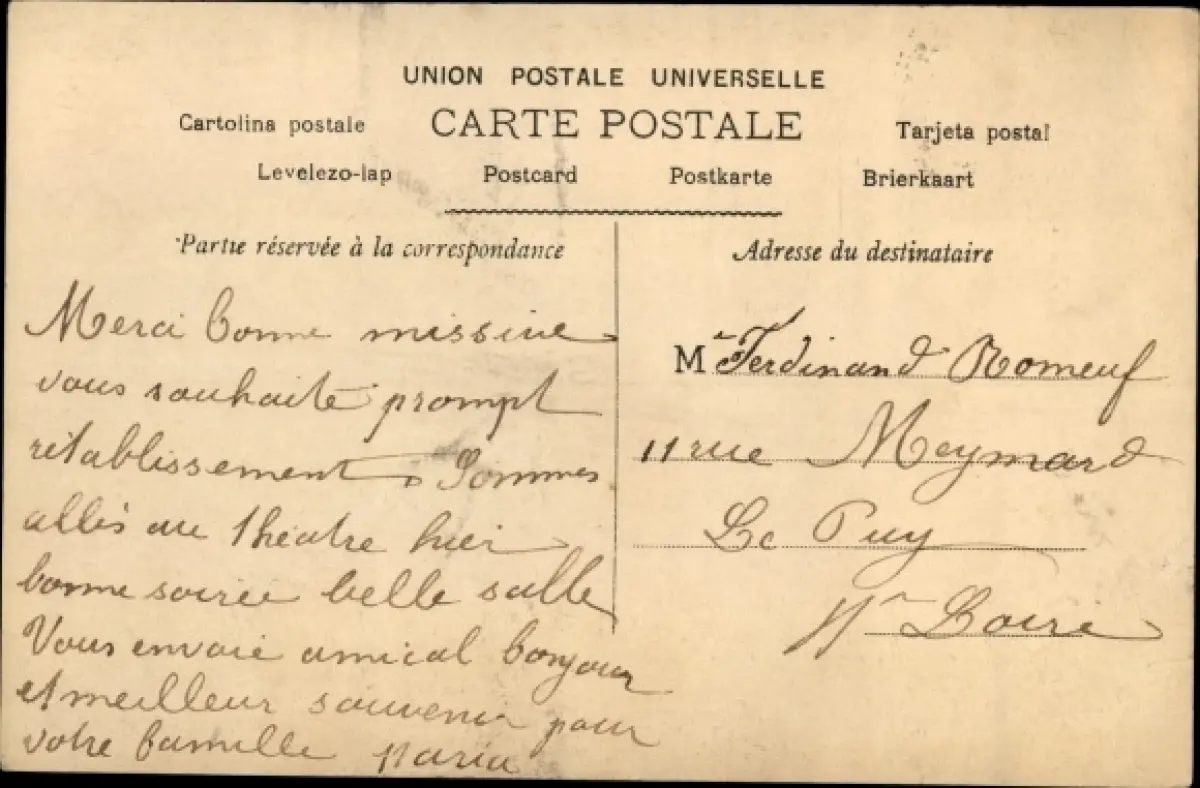 UNION POSTALE UNIVERSELLE
CARTE POSTALE
Cartolina postale
Tarjeta postal
Levelezo-lap
Postcard
Postkarte
Brierkaart
Partie réservée à la correspondance
Merci bonne missive
vous souhaite prompt
rétablissement Sommes
allés au théâtre hier
bonne soirée belle salle
Vous envoie amical bonjour
et meilleur souvenir pour
votre famille Maria
Adresse du destinataire
Mr Ferdinand Romeuf
11 rue Meymard
Le Puy
Hte Loire